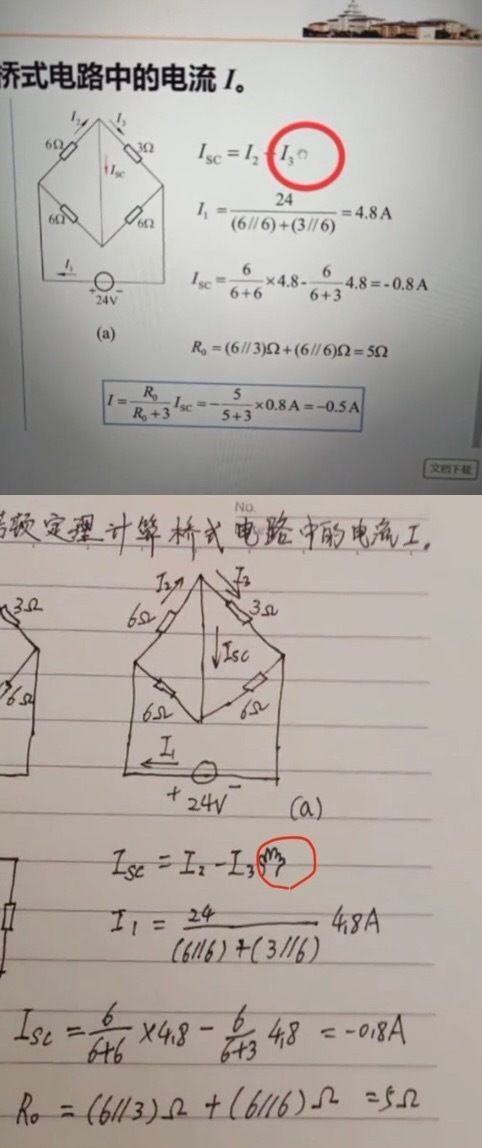 桥式电路中的电流 I。
I₂ I₃
6Ω 3Ω
I_SC
6Ω 6Ω
I₁
+ −
24V
(a)
I_SC = I₂ - I₃
I₁ = 24/((6//6)+(3//6)) = 4.8 A
I_SC = 6/(6+6) ×4.8- 6/(6+3) 4.8 = -0.8 A
R₀ = (6//3)Ω+(6//6)Ω= 5Ω
I = R₀/(R₀+3) I_SC = - 5/(5+3) ×0.8 A = -0.5 A
文档下载
No.
顿定理计算桥式电路中的电流 I。
I₂ I₃
3Ω 6Ω 3Ω
I_SC
6Ω 6Ω 6Ω
I₁
+ 24V −
(a)
I_SC = I₂ - I₃
I₁ = 24/((6//6)+(3//6)) 4.8A
I_SC = 6/(6+6) ×4.8 - 6/(6+3) 4.8 = -0.8A
R₀ = (6//3)Ω + (6//6)Ω =5Ω